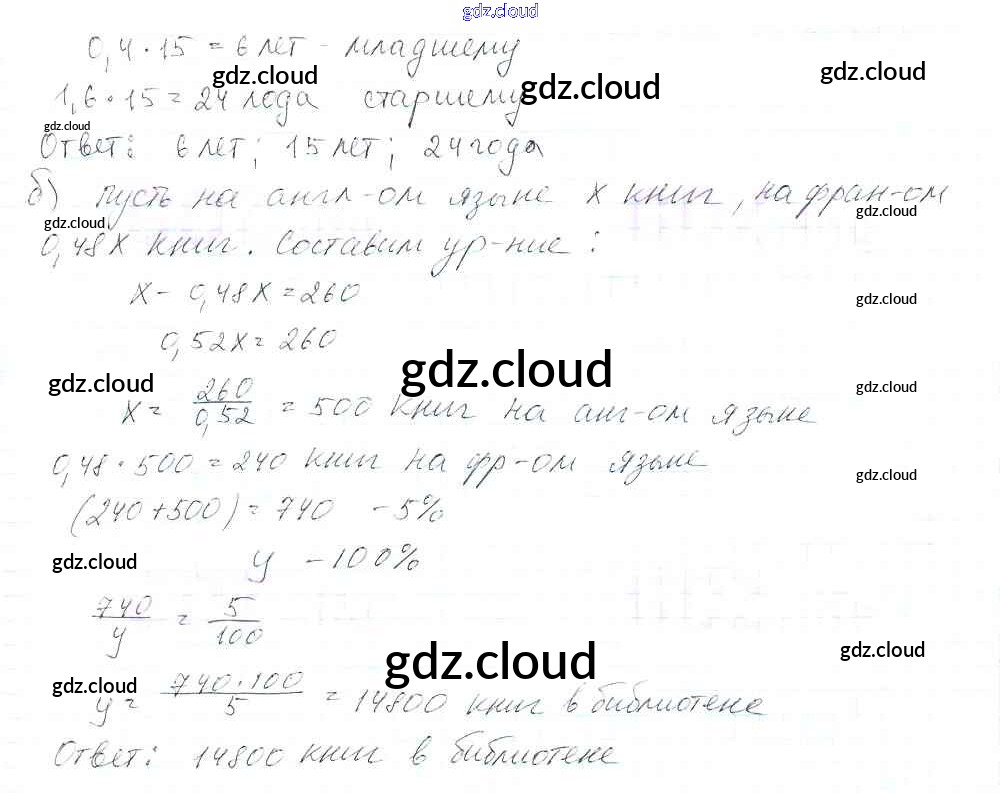 gdz.cloud
0,4 · 15 = 6 лет - младшему
gdz.cloud gdz.cloud gdz.cloud
1,6 · 15 = 24 года старшему
gdz.cloud
Ответ: 6 лет; 15 лет; 24 года
б) пусть на англ-ом языке х книг, на фран-ом
gdz.cloud gdz.cloud
0,48х книг. Составим ур-ние:
х - 0,48х = 260
gdz.cloud
0,52х = 260
gdz.cloud gdz.cloud gdz.cloud
х = 260/0,52 = 500 книг на анг-ом языке
0,48 · 500 = 240 книг на фр-ом языке
gdz.cloud
(240 + 500) = 740 - 5%
gdz.cloud
у - 100%
740/у = 5/100
gdz.cloud gdz.cloud
gdz.cloud
у = 740·100/5 = 14800 книг в библиотеке
Ответ: 14800 книг в библиотеке